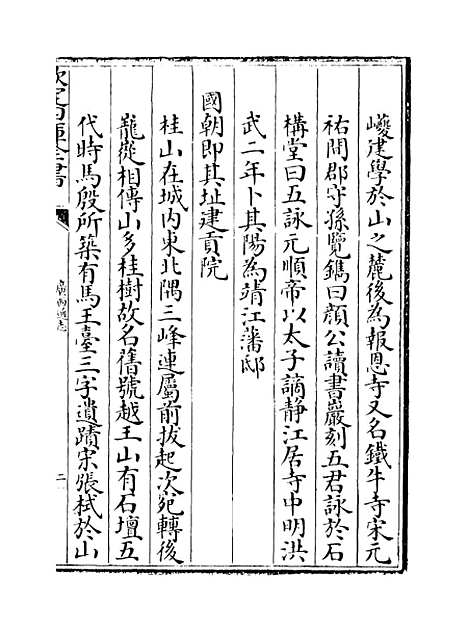 巙建學於山之麓後為報恩寺又名鐵牛寺宋元
祐間郡守孫覽鐫曰顔公讀書巖刻五君詠於石
構堂曰五詠元順帝以太子謫静江居寺中明洪
武二年卜其陽為靖江藩邸
國朝即其址建貢院
桂山在城内東北隅三峰連屬前拔起次宛轉後
龍嵸相傳山多桂樹故名舊號越王山有石壇五
代時馬殷所築有馬王臺三字遺蹟宋張栻於山
欽定四庫全書
廣西通志
二